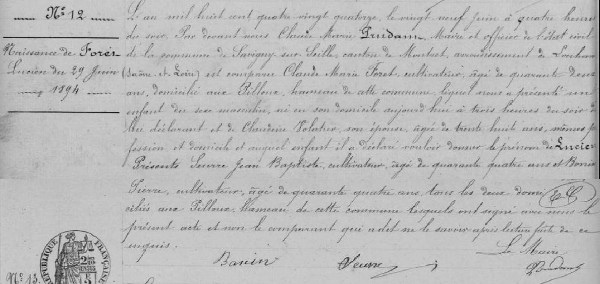 N° 12
Naissance de Forêt
Lucien du 29 Juin
1894
L'an mil huit cent quatre vingt quatorze, le vingt neuf juin à quatre heures
du soir. Par devant nous Claude Marie Prudam, Maire et officier de l'état civil
de la commune de Savigny sur Seille, canton de Montret, arrondissement de Louhans
(Saône et Loire) est comparu Claude Marie Foret, cultivateur, âgé de quarante deux
ans, domicilié aux Pilloux, hameau de cette commune, lequel nous a présenté un
enfant du sexe masculin, né en son domicile aujourd'hui à trois heures du soir de
lui déclarant et de Claudine son épouse, âgée de trente huit ans, mêmes pro
fession et domicile et auquel enfant il a déclaré vouloir donner le prénom de Lucien
Présents Seurre Jean Baptiste, cultivateur, âgé de quarante quatre ans et
Pierre, cultivateur, âgé de quarante quatre ans, tous les deux domi
ciliés aux Pilloux, hameau de cette commune lesquels ont signé avec nous le
présent acte et non le comparant qui a dit ne le savoir après lecture faite de ce
enquis.
Le Maire
Seurre
RÉPUBLIQUE FRANÇAISE
N° 13